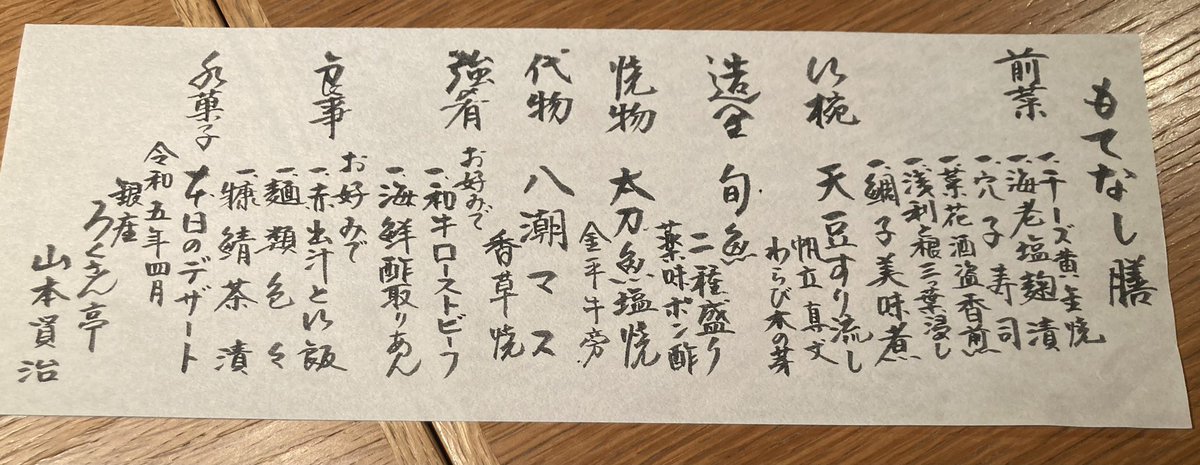 もてなし膳
前菜
一、チーズ黄金焼
一、海老塩麹漬
一、穴子寿司
一、菜花酒盗香煎
一、浅利と根三つ葉浸し
一、鯛子美味煮
吸椀
天豆すり流し
帆立真丈
わらび木の芽
造里
旬魚
二種盛り
薬味ポン酢
焼物
太刀魚塩焼
金平牛旁
代物
八潮マス
香草焼
強肴
お好みで
一、和牛ローストビーフ
一、海鮮酢取りあん
食事
お好みで
一、赤出汁と御飯
一、麺類色々
一、糠鯖茶漬
水菓子
本日のデザート
令和五年四月
銀座
ろくさん亭
山本賢治